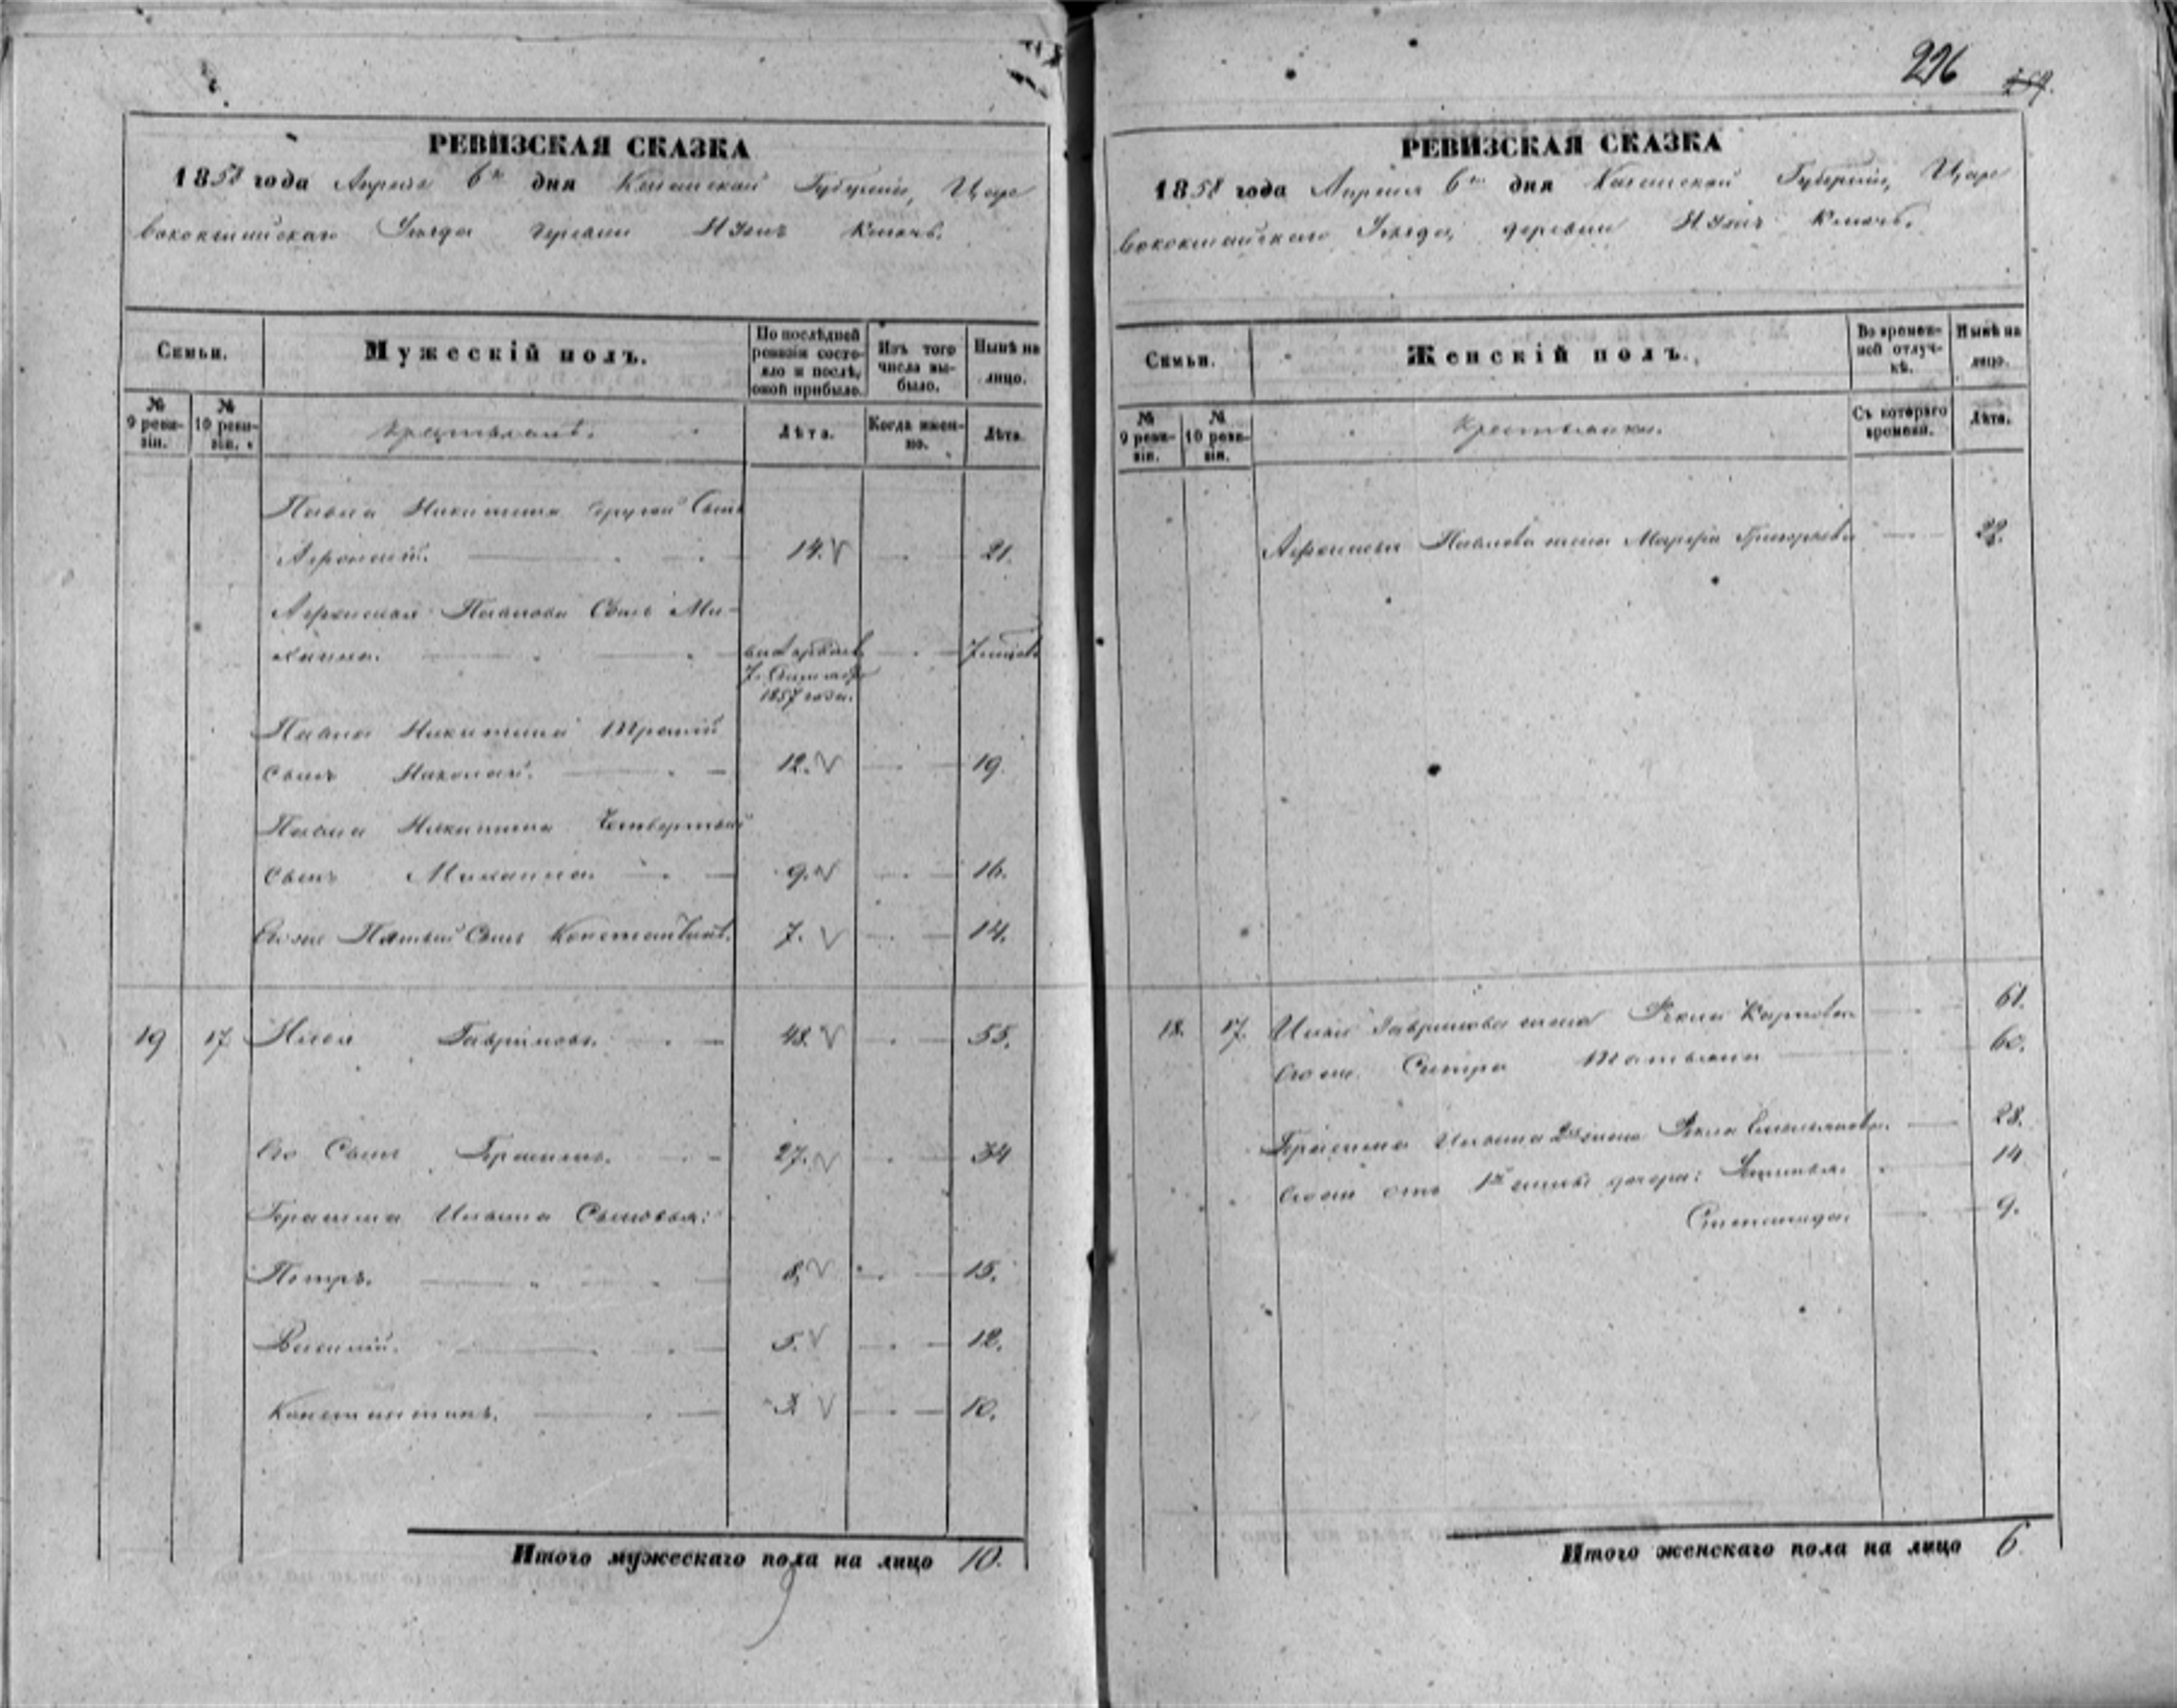 РЕВИЗСКАЯ СКАЗКА
1858 года Апреля 6го дня Казанской Губерніи, Царе
вококшайскаго Уѣзда деревни Ключь.
Семьи.
Мужескій полъ.
По послѣдней ревизіи состояло и послѣ оной прибыло.
Изъ того числа выбыло.
Нынѣ на лицо.
№ 9 ревизіи.
№ 10 ревизіи.
Крестьяне.
Лѣта.
Когда именно.
Лѣта.
Павла Никитина другой Сынъ
Афонасій. 14. 21.
Афонасья Павлова Сынъ Ми-
хаила. 7
7. 1857 года.
Павла Никитина Третій
сынъ Николай. 12. 19.
Павла Никитина Четвертый
сынъ Михаила. 9. 16.
Его же Пятый Сынъ Константинъ. 7. 14.
19 17 Илья Гавриловъ. 48. 55.
Его Сынъ Герасимъ. 27. 34
Герасима Ильина Сыновья:
Петръ. 8. 15.
Василій. 5. 12.
Константинъ. 3 10.
Итого мужескаго пола на лицо 10.
226
РЕВИЗСКАЯ СКАЗКА
1858 года Апреля 6го дня Казанской Губерніи, Царе
вококшайскаго Уѣзда, деревни Ключь.
Семьи.
Женскій полъ.
Во временной отлучкѣ.
Нынѣ на лицо.
№ 9 ревизіи.
№ 10 ревизіи.
Крестьянки.
Съ котораго времени.
Лѣта.
Афонасья Павлова жена Марфа Григорьева
18. 17. Ильи Гаврилова жена Фекла Карпова 61.
Его же Сестра Татьяна 60.
Герасима Ильина 2я жена Фекла 28.
Его же отъ 1й жены дочери: 14
Степанида. 9.
Итого женскаго пола на лицо 6